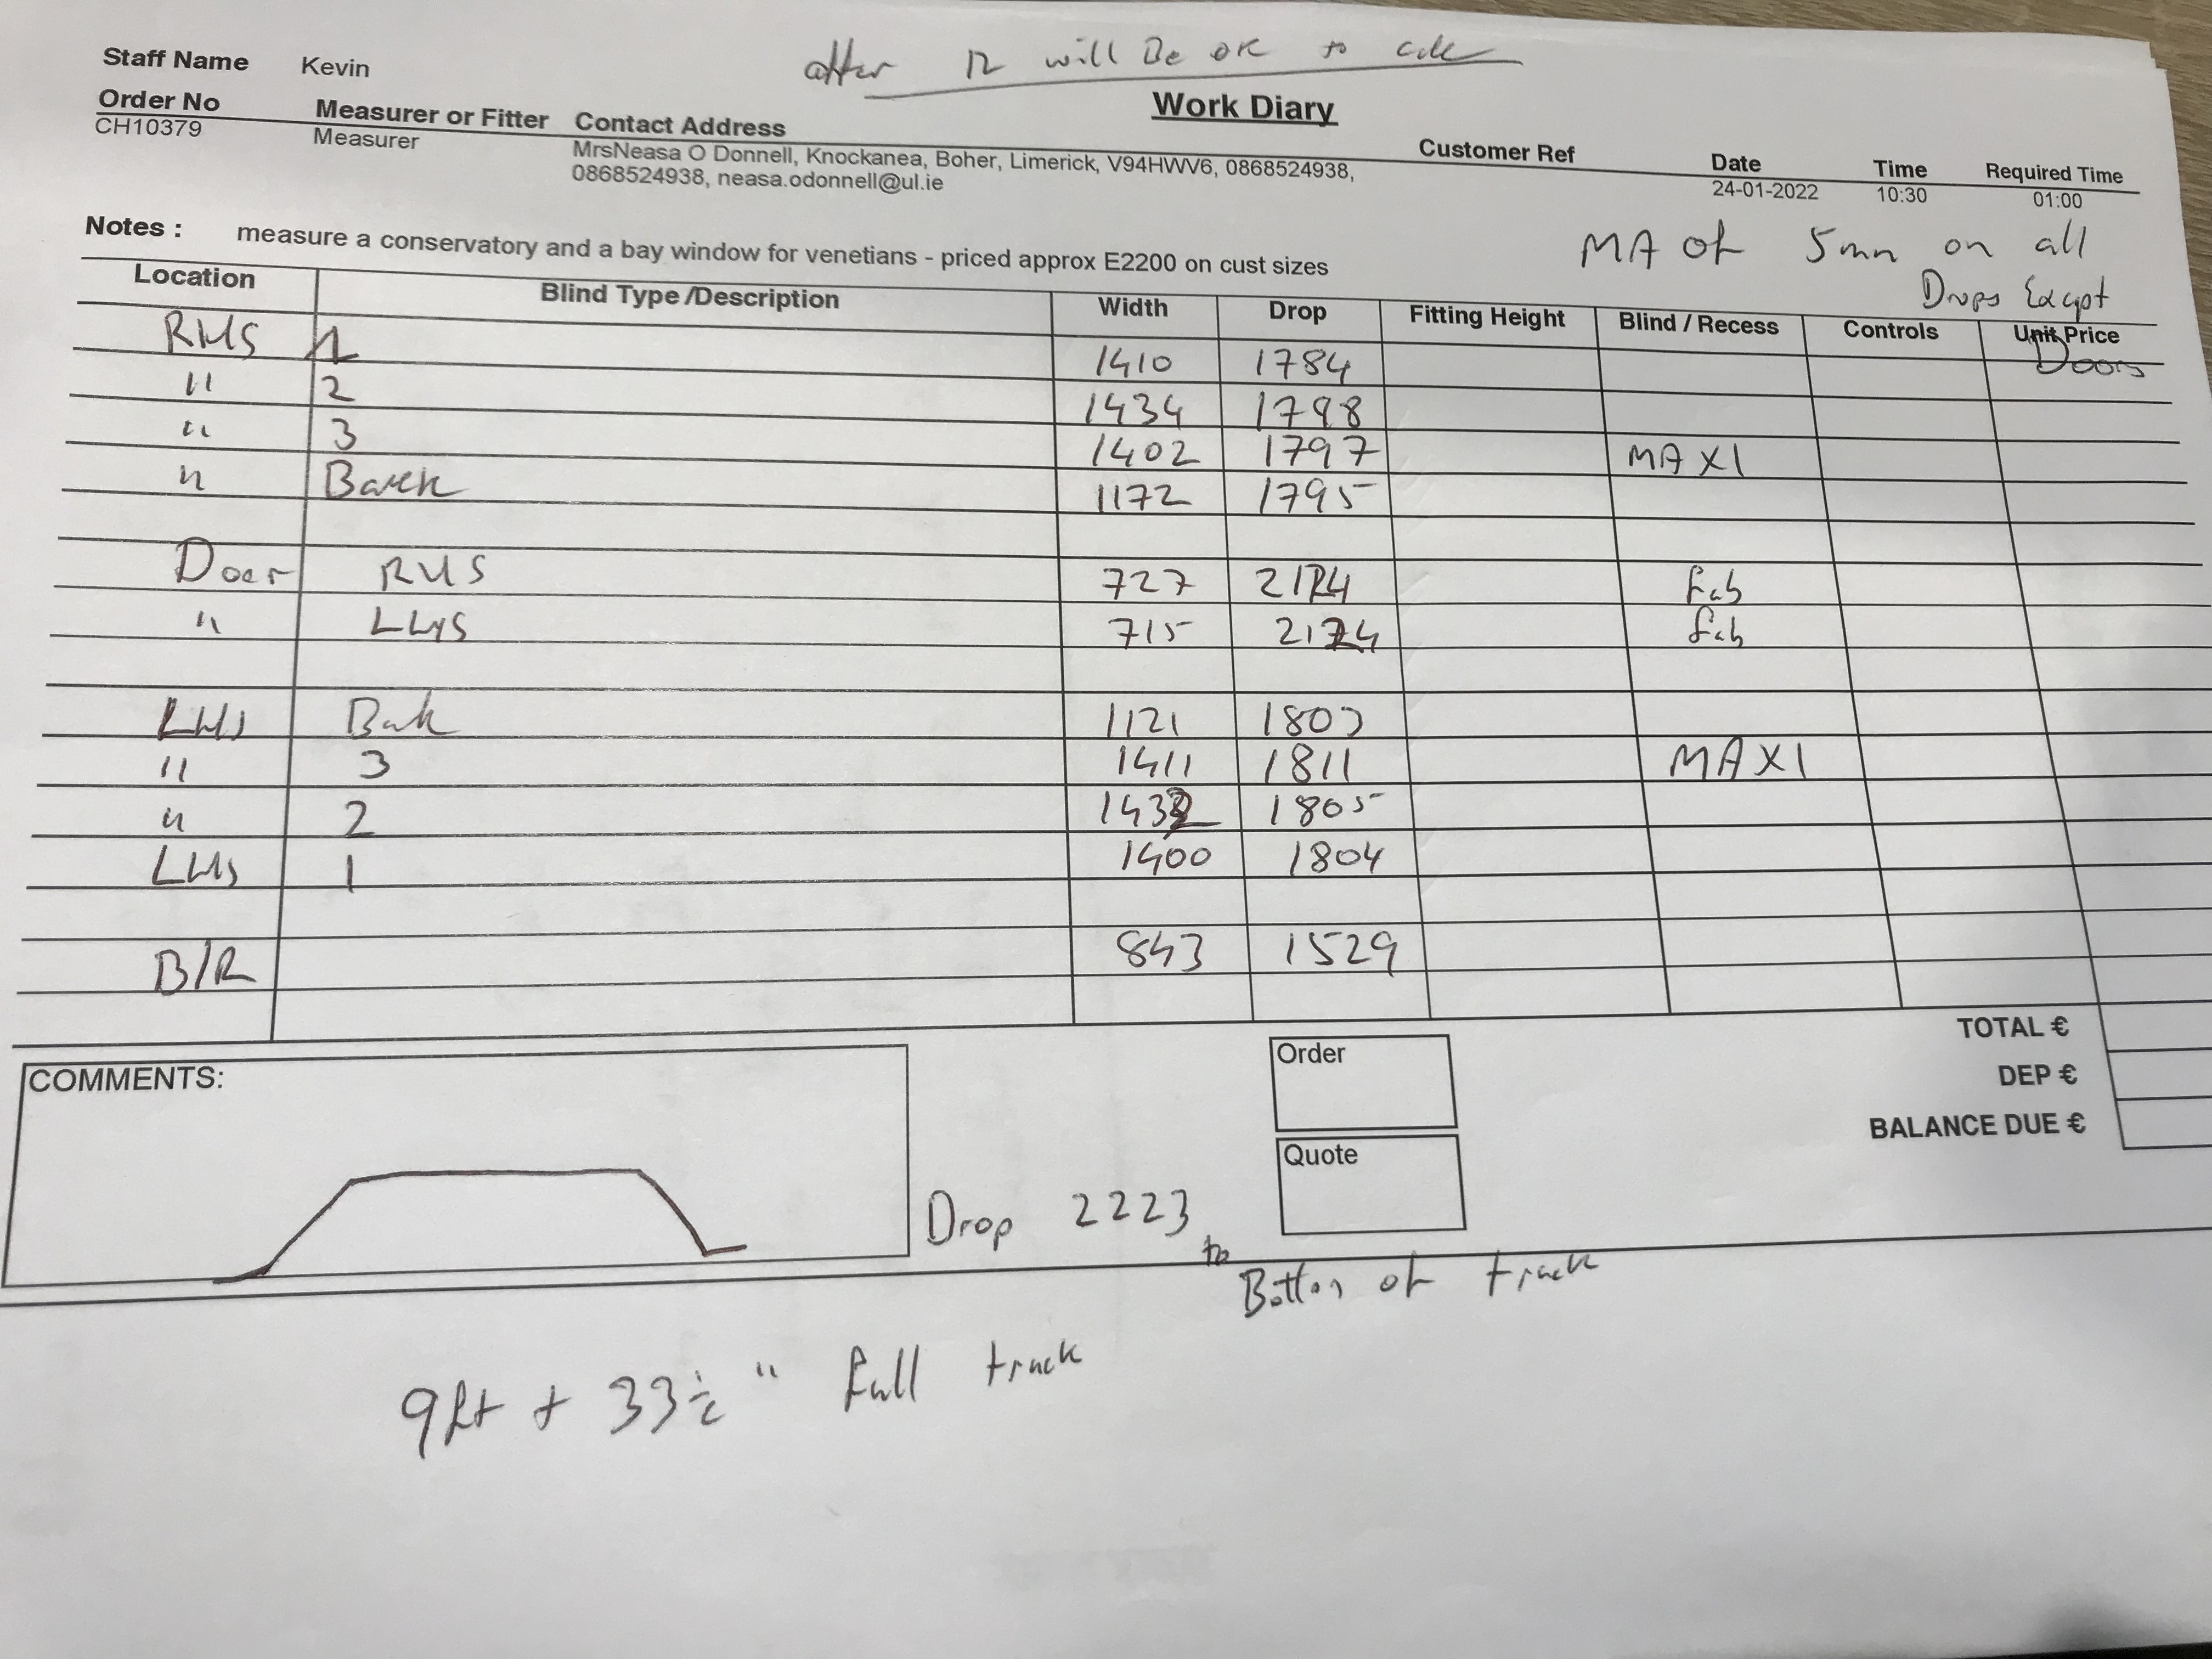 after 12 will Be ok to call
Staff Name Kevin
Work Diary
Order No Measurer or Fitter Contact Address Customer Ref Date Time Required Time
CH10379 Measurer MrsNeasa O Donnell, Knockanea, Boher, Limerick, V94HWV6, 0868524938, 24-01-2022 10:30 01:00
0868524938, neasa.odonnell@ul.ie
Notes : measure a conservatory and a bay window for venetians - priced approx E2200 on cust sizes
MA of 5mm on all
Drops Except
Doors
Location Blind Type /Description Width Drop Fitting Height Blind / Recess Controls Unit Price
RHS 1 1410 1784
" 2 1434 1798
" 3 1402 1797 MAXI
" Back 1172 1795
Door RHS 727 Fab
" LHS 715 Fab
LHS Back 1121 1803
" 3 1411 1811 MAXI
" 2 1432 1805
LHS 1 1400 1804
B/R 843 1529
TOTAL €
DEP €
BALANCE DUE €
COMMENTS:
Order
Quote
Drop 2223 to
Bottom of track
9ft + 33½ " full track